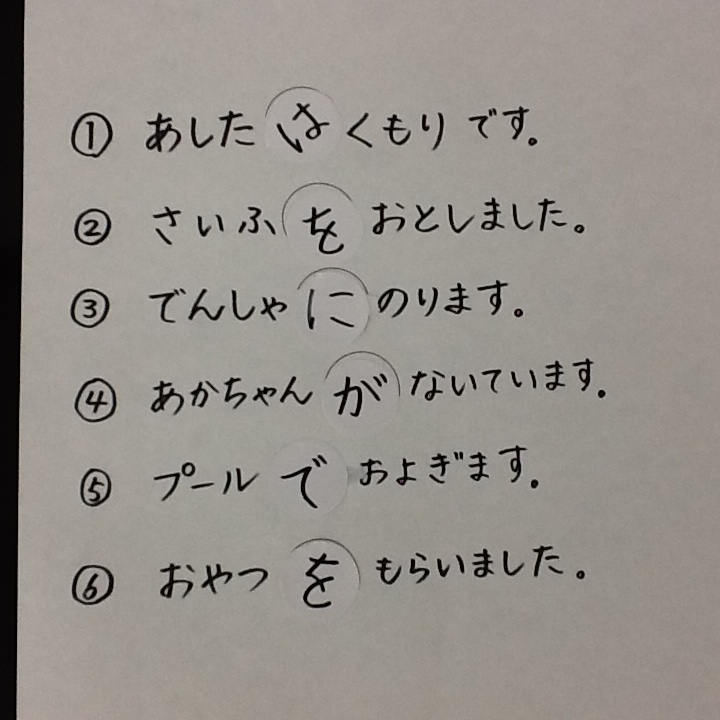 ① あした は くもり です。
② さいふ を おとしました。
③ でんしゃ に のります。
④ あかちゃん が ないています。
⑤ プール で およぎます。
⑥ おやつ を もらいました。